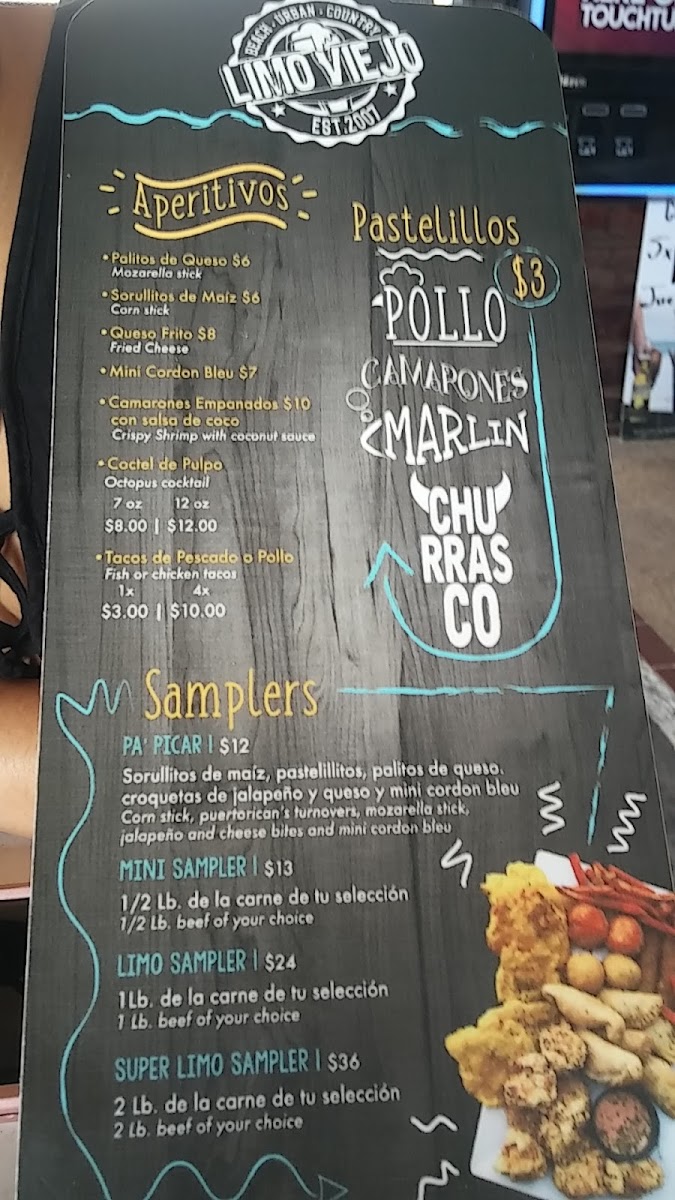 BEACH · URBAN · COUNTRY
LIMO VIEJO
EST.2007
TOUCHTU
Aperitivos
• Palitos de Queso $6
Mozarella stick
• Sorullitos de Maíz $6
Corn stick
• Queso Frito $8
Fried Cheese
• Mini Cordon Bleu $7
• Camarones Empanados $10
con salsa de coco
Crispy Shrimp with coconut sauce
• Coctel de Pulpo
Octopus cocktail
7 oz 12 oz
$8.00 | $12.00
• Tacos de Pescado o Pollo
Fish or chicken tacos
1x 4x
$3.00 | $10.00
Pastelillos
$3
POLLO
CAMARONES
MARLIN
CHU
RRAS
CO
Samplers
PA' PICAR | $12
Sorullitos de maíz, pastelillitos, palitos de queso.
croquetas de jalapeño y queso y mini cordon bleu
Corn stick, puertorican's turnovers, mozarella stick,
jalapeño and cheese bites and mini cordon bleu
MINI SAMPLER | $13
1/2 Lb. de la carne de tu selección
1/2 Lb. beef of your choice
LIMO SAMPLER | $24
1Lb. de la carne de tu selección
1 Lb. beef of your choice
SUPER LIMO SAMPLER | $36
2 Lb. de la carne de tu selección
2 Lb. beef of your choice